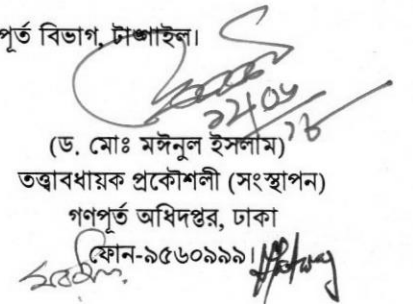 পূর্ত বিভাগ, টাঙ্গাইল।
(ড. মোঃ মঈনুল ইসলাম)
তত্ত্বাবধায়ক প্রকৌশলী (সংস্থাপন)
গণপূর্ত অধিদপ্তর, ঢাকা
ফোন-৯৫৬০৯৯৯।